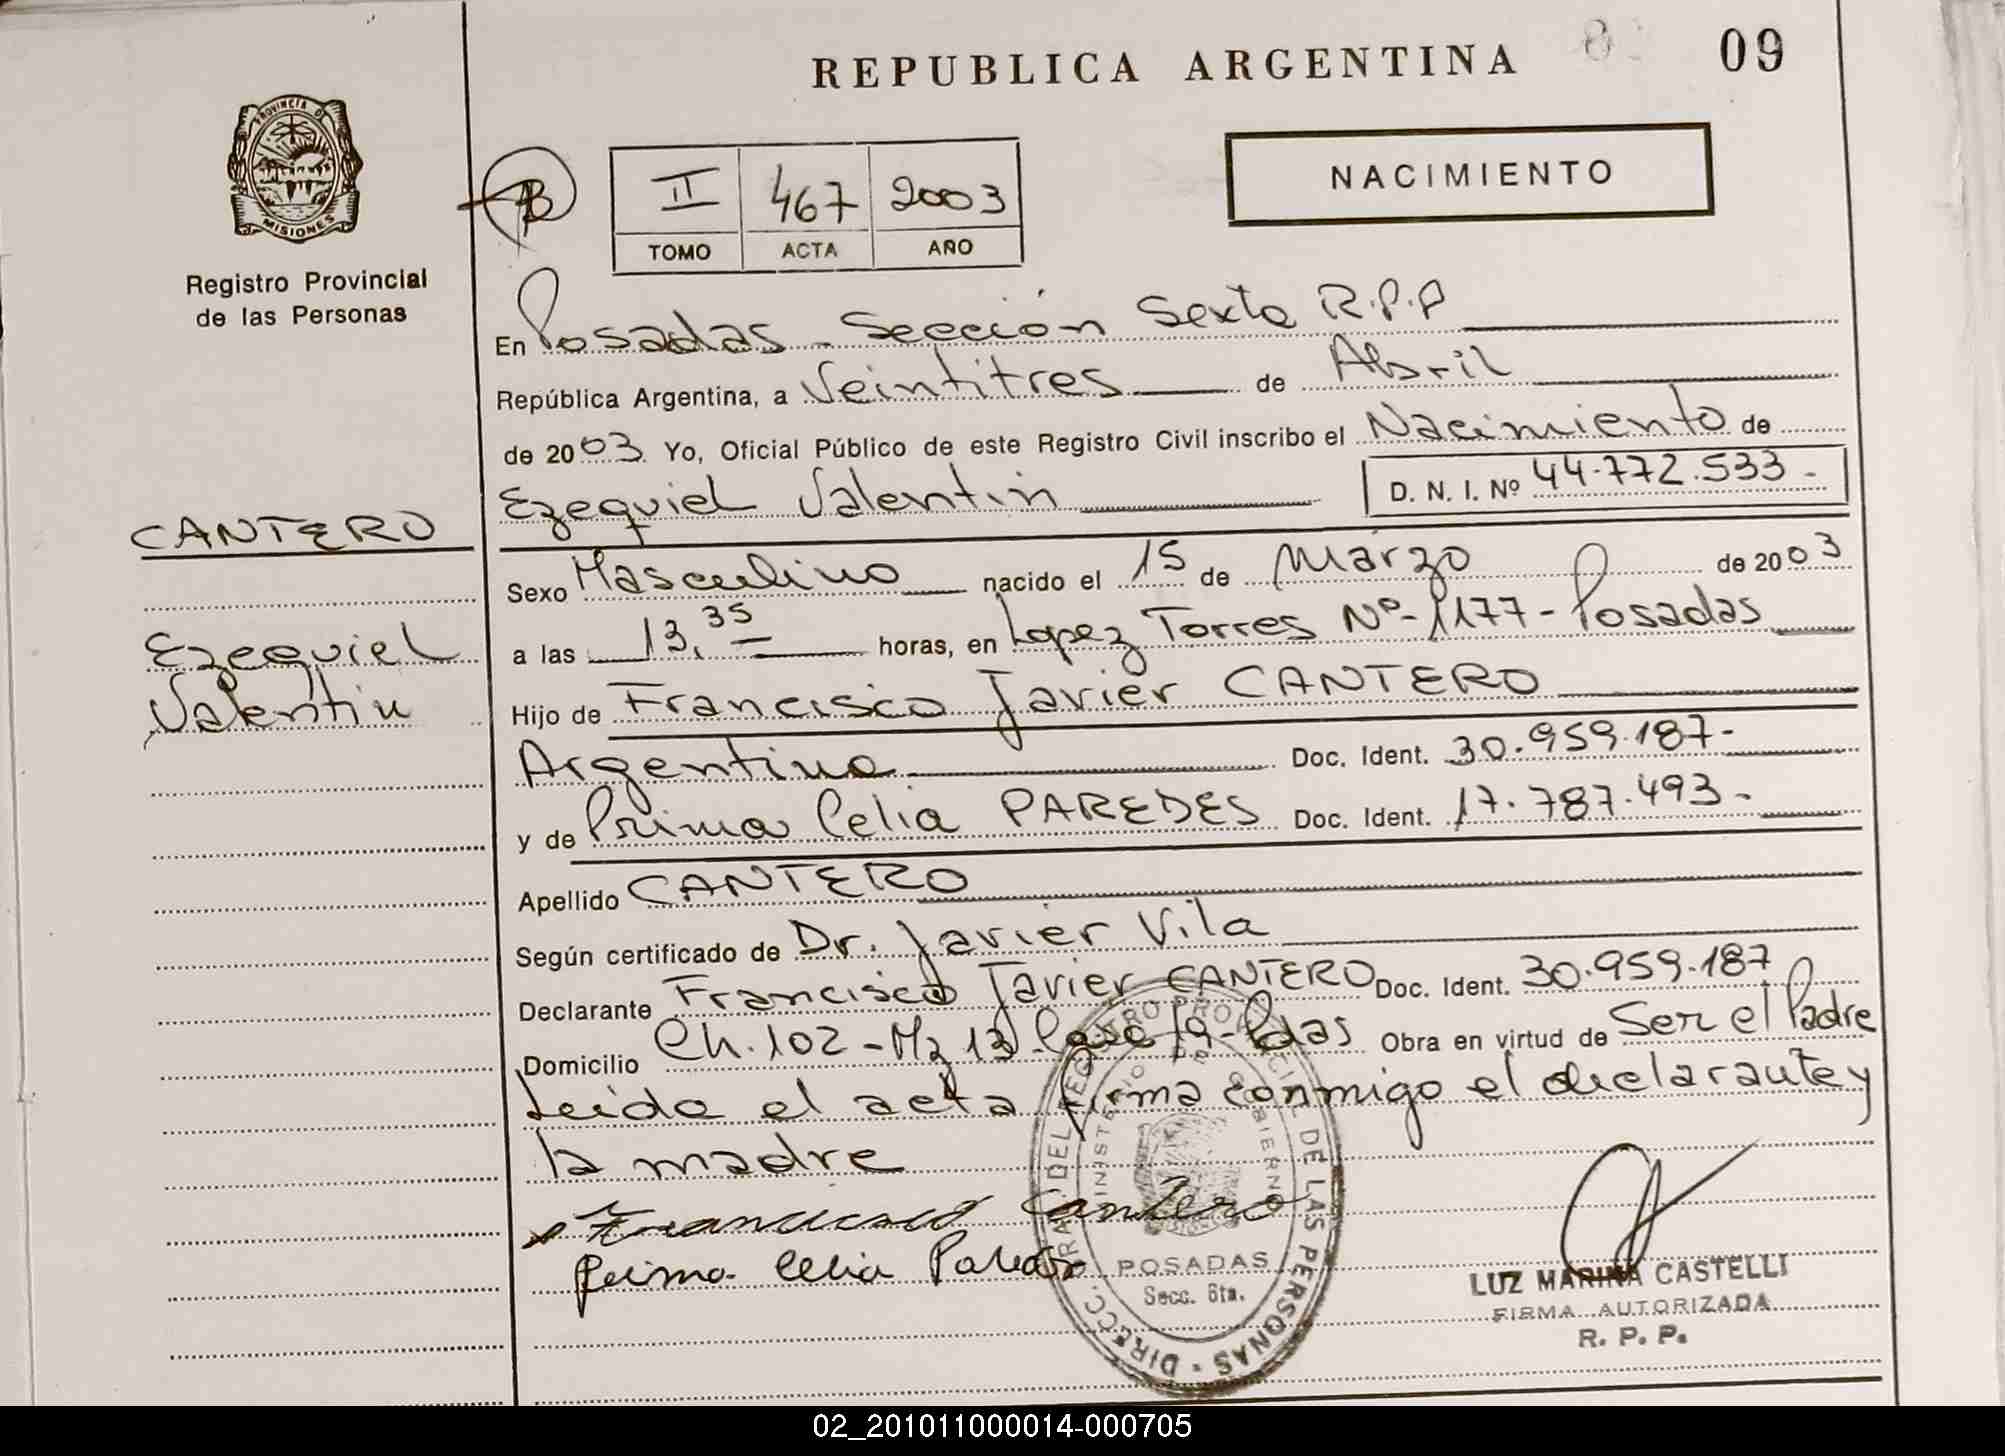 REPUBLICA ARGENTINA
09
PROVINCIA DE
MISIONES
Registro Provincial
de las Personas
II 467 2003
TOMO ACTA AÑO
NACIMIENTO
En Posadas - Sección Sexta R.P.P
República Argentina, a Veintitres de Abril
de 2003 Yo, Oficial Público de este Registro Civil inscribo el Nacimiento de
Ezequiel Valentin D. N. I. Nº 44.772.533 -
CANTERO
Ezequiel
Valentin
Sexo Masculino nacido el 15 de Marzo de 2003
a las 13,35 horas, en Lopez Torres Nº 1177 - Posadas
Hijo de Francisco Javier CANTERO
Argentina Doc. Ident. 30.959.187-
y de Prima Celia PAREDES Doc. Ident. 17.787.493-
Apellido CANTERO
Según certificado de Dr. Javier Vila
Declarante Francisco Javier CANTERO Doc. Ident. 30.959.187
Domicilio Ch. 102 - Mz 13 Pdas Obra en virtud de Ser el Padre
Leida el acta firma conmigo el declarante y
la madre
Francisco Cantero
Prima Celia Paredes
DIRECC. GRAL. DEL REGISTRO PROVINCIAL DE LAS PERSONAS
MINISTERIO DE GOBIERNO
POSADAS
Secc. 6ta.
LUZ MARINA CASTELLI
FIRMA AUTORIZADA
R. P. P.
02_201011000014-000705